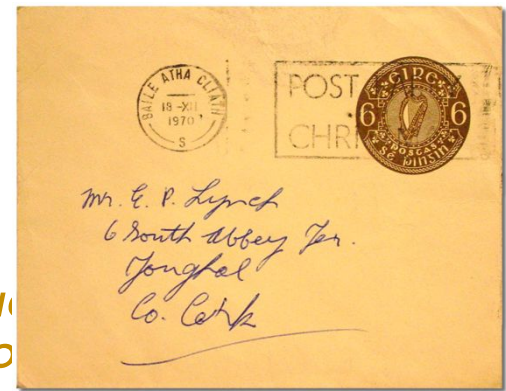 BAILE ATHA CLIATH
18 -XII
1970
S
POST
CHRI
EIRE
6 6
POSTAS
SÉ PINSIN
Mr. E. P. Lynch
6 South Abbey Ter.
Youghal
Co. Cork